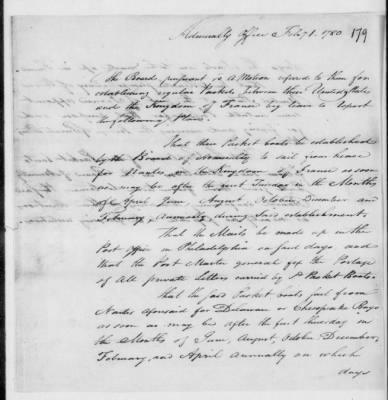 Admiralty Office Feby 1. 1780 179
The Board, pursuant to a Motion referred to them for
establishing regular Packets between these United States
and the Kingdom of France beg leave to report
the following Plan.
That three Packet boats be established
by the Board of Admiralty to sail from hence
for Nantes in the Kingdom of France as soon
as may be after the first Tuesday in the Months
of April June, August, October, December and
February, Annually during said establishment.
That the Mails be made up in the
Post Office in Philadelphia on said days and
that the Post Master general fix the Postage
of All private Letters carried by sd Packet Boats.
That the said Packet boats sail from
Nantes aforesaid for Delaware or Chesapeake Bays
as soon as may be after the first thursday in
the Months of June, August, October, December,
February, and April annually on which
days